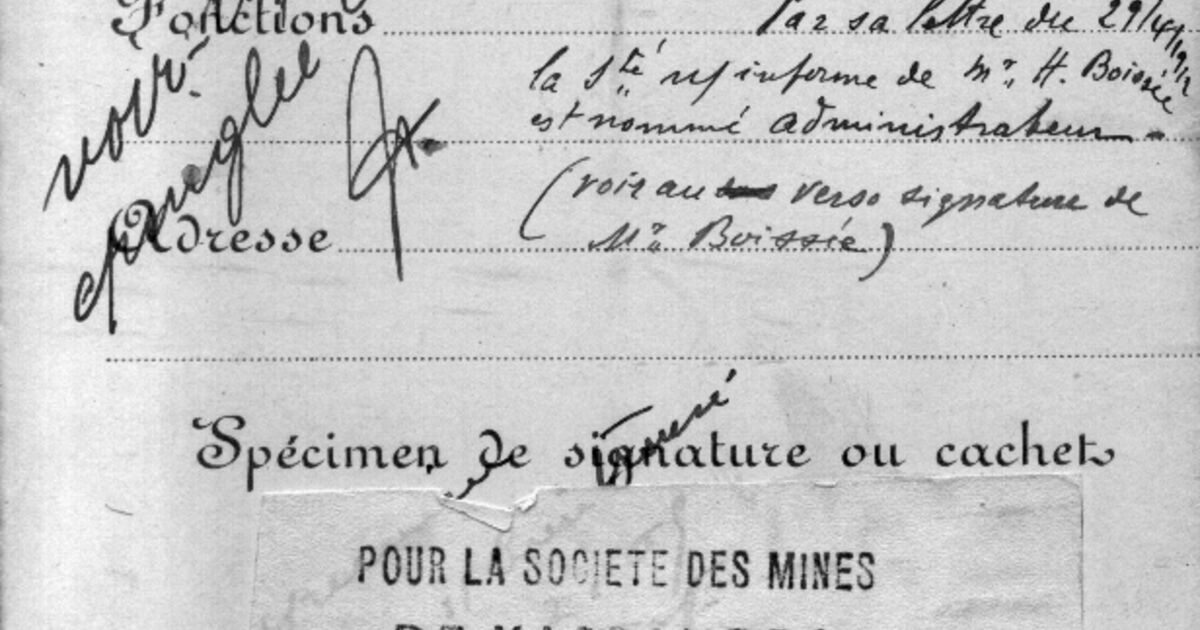 Fonctions
Par sa lettre du 29/4/1912
la Sté ns informe de Mr. H. Boissée
est nommé administrateur
(voir au verso signature de
Mr. Boissée)
voir
épinglée
Adresse
Spécimen de signature ou cachet
POUR LA SOCIETE DES MINES